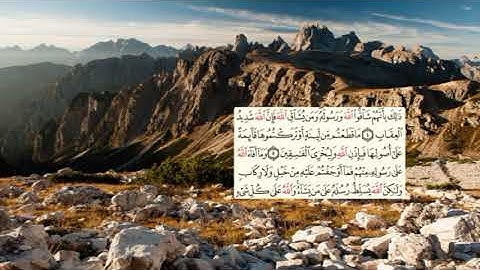 ذَٰلِكَ بِأَنَّهُمْ شَاقُّوا۟ ٱللَّهَ وَرَسُولَهُۥ وَمَن يُشَآقِّ ٱللَّهَ فَإِنَّ ٱللَّهَ شَدِيدُ
ٱلْعِقَابِ ٤ مَا قَطَعْتُم مِّن لِّينَةٍ أَوْ تَرَكْتُمُوهَا قَآئِمَةً
عَلَىٰٓ أُصُولِهَا فَبِإِذْنِ ٱللَّهِ وَلِيُخْزِىَ ٱلْفَٰسِقِينَ ٥ وَمَآ أَفَآءَ ٱللَّهُ
عَلَىٰ رَسُولِهِۦ مِنْهُمْ فَمَآ أَوْجَفْتُمْ عَلَيْهِ مِنْ خَيْلٍ وَلَا رِكَابٍ
وَلَٰكِنَّ ٱللَّهَ يُسَلِّطُ رُسُلَهُۥ عَلَىٰ مَن يَشَآءُ وَٱللَّهُ عَلَىٰ كُلِّ شَىْءٍ